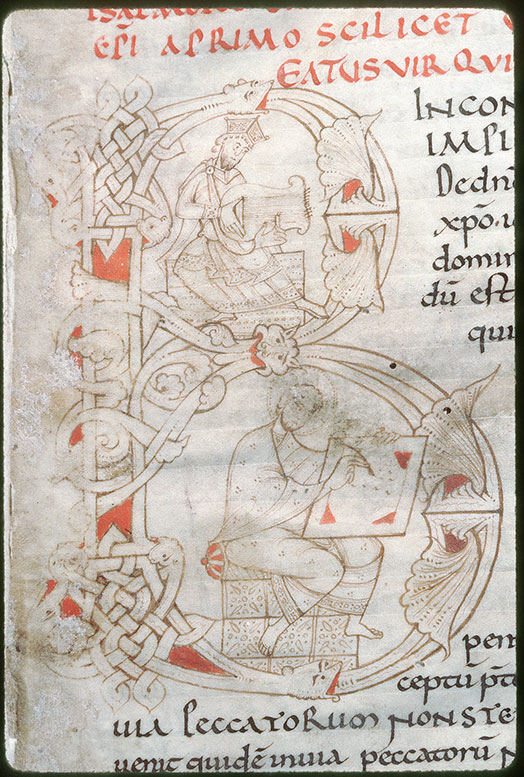 ESTI A PRIMO SCILICET
EATUS VIR QVI
INCON
IMPI
Dedn̄o
xp̄o. i
domin
dū est
qui
pem
ceptū p̄t
UIA PECCATORUM NON STE
uenit quidē inuia peccatorū N